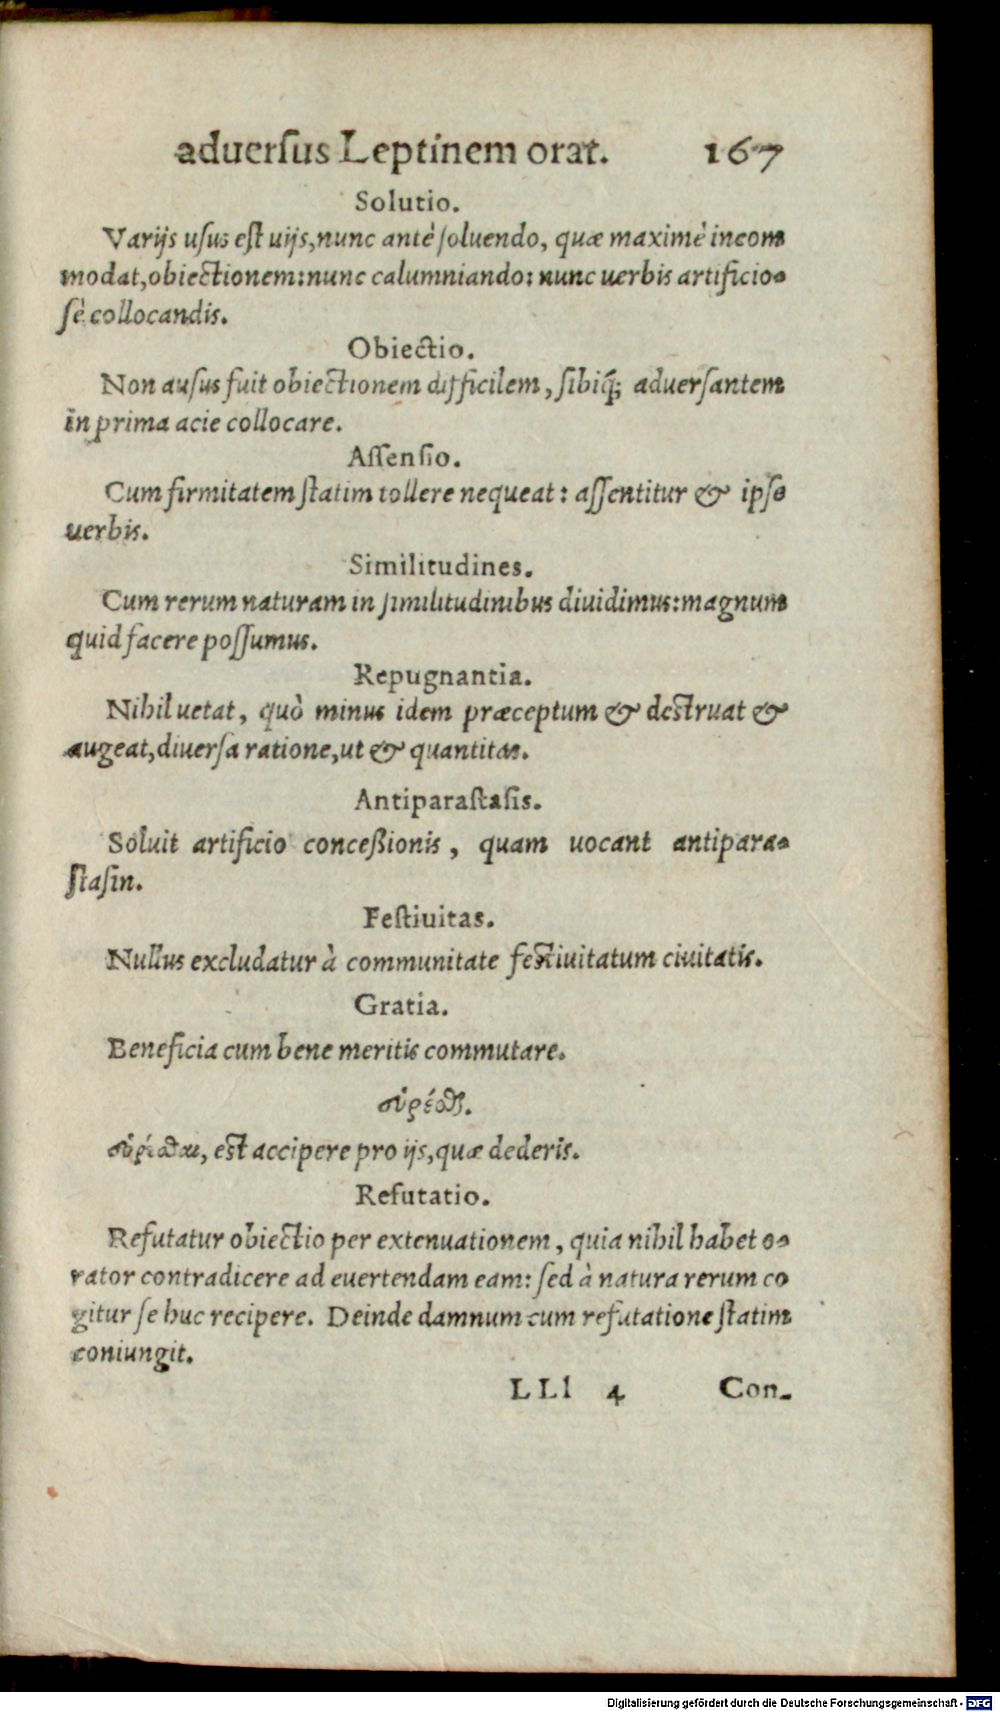 aduerſus Leptinem orat. 167
Solutio.
Varijs uſus eſt uijs, nunc antè ſoluendo, quæ maximè incom
modat, obiectionem: nunc calumniando: nunc uerbis artificio-
ſè collocandis.
Obiectio.
Non auſus fuit obiectionem difficilem, ſibiq́; aduerſantem
in prima acie collocare.
Aſſenſio.
Cum firmitatem ſtatim tollere nequeat: aſſentitur & ipſe
uerbis.
Similitudines.
Cum rerum naturam in ſimilitudinibus diuidimus: magnum
quid facere poſſumus.
Repugnantia.
Nihil uetat, quò minus idem præceptum & deſtruat &
augeat, diuerſa ratione, ut & quantitas.
Antiparaſtaſis.
Soluit artificio conceßionis, quam uocant antipara-
ſtaſin.
Feſtiuitas.
Nullus excludatur à communitate feſtiuitatum ciuitatis.
Gratia.
Beneficia cum bene meritis commutare.
est accipere pro ijs, quæ dederis.
Refutatio.
Refutatur obiectio per extenuationem, quia nihil habet o-
rator contradicere ad euertendam eam: ſed à natura rerum co
gitur ſe huc recipere. Deinde damnum cum refutatione ſtatim
coniungit.
LLl 4 Con-
Digitalisierung gefördert durch die Deutsche Forschungsgemeinschaft - DFG